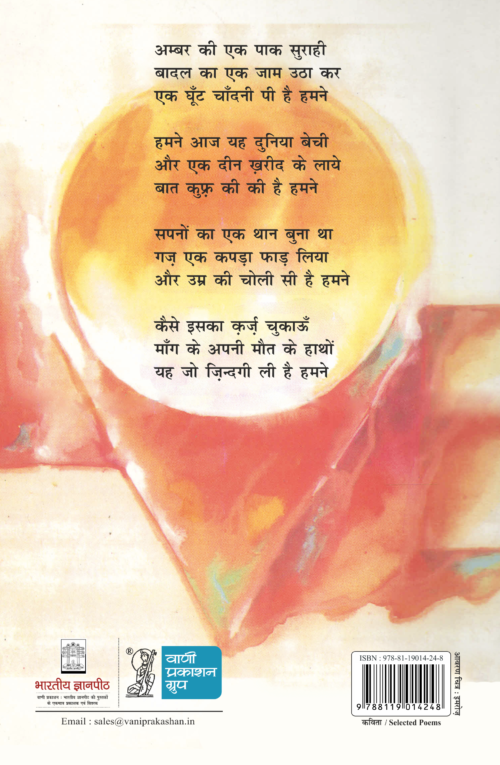 अम्बर की एक पाक सुराही
बादल का एक जाम उठा कर
एक घूँट चाँदनी पी है हमने
हमने आज यह दुनिया बेची
और एक दीन ख़रीद के लाये
बात कुफ़्र की की है हमने
सपनों का एक थान बुना था
गज़ एक कपड़ा फाड़ लिया
और उम्र की चोली सी है हमने
कैसे इसका क़र्ज़ चुकाऊँ
माँग के अपनी मौत के हाथों
यह जो ज़िन्दगी ली है हमने
भारतीय ज्ञानपीठ
वाणी प्रकाशन : भारतीय ज्ञानपीठ की पुस्तकों
के एकमात्र प्रकाशक एवं वितरक
®
वाणी
प्रकाशन
ग्रुप
Email : sales@vaniprakashan.in
ISBN : 978-81-19014-24-8
9 788119 014248
कविता / Selected Poems
आवरण चित्र : इमरोज़